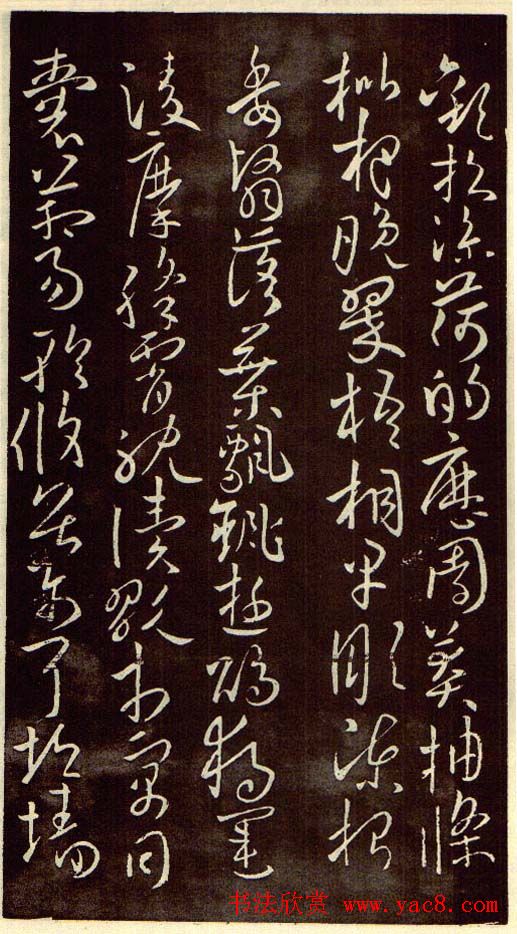 歡招渠荷的歷園莽抽條
枇杷晚翠梧桐早彫陳根
委翳落葉飄颻遊鵾獨運
淩摩絳霄耽讀翫市寓目
囊箱易輶攸畏屬耳垣墻
书法欣赏 www.yac8.com